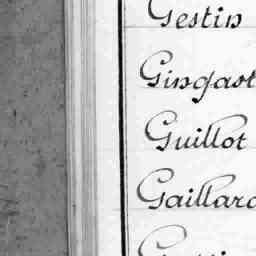 Gestin
Gingast
Guillot
Gaillard